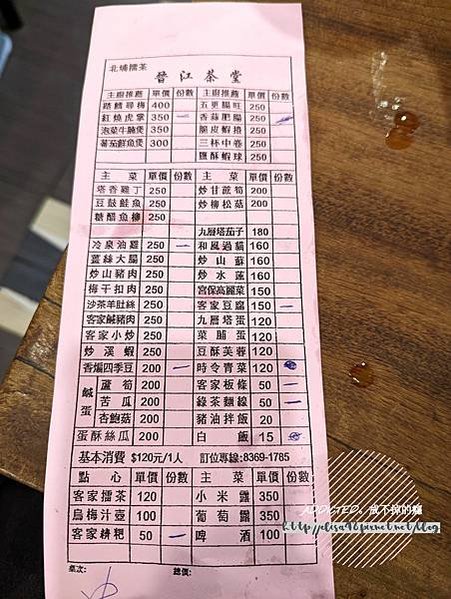 北埔擂茶
晉江茶堂
主廚推薦 單價 份數 主廚推薦 單價 份數
踏鱔尋梅 400 五更腸旺 250
紅燒虎掌 350 一 香蒜肥腸 250
泡菜牛腩煲 350 脆皮蝦捲 250
蕃茄鮮魚煲 300 三杯中卷 250
鹽酥蝦球 250
主菜 單價 份數 主菜 單價 份數
塔香雞丁 250 炒甘蔗筍 200
豆鼓鮭魚 250 炒柳松菇 200
糖醋魚柳 250
九層塔茄子 180
冷泉油雞 250 一 和風過貓 160
薑絲大腸 250 炒山蘇 160
炒山豬肉 250 炒水蓮 160
梅干扣肉 250 宮保高麗菜 150
沙茶羊肚絲 250 客家豆腐 150 一
客家鹹豬肉 250 九層塔蛋 120
客家小炒 250 菜脯蛋 120
炒溪蝦 250 豆酥芙蓉 120
香煸四季豆 200 一 時令青菜 120
鹹蛋 蘆筍 200 客家板條 50 一
苦瓜 200 綠茶麵線 50 一
杏鮑菇 200 豬油拌飯 20
蛋酥絲瓜 200 白飯 15
基本消費 $120元/1人 訂位專線:8369-1785
點心 單價 份數 主菜 單價 份數
客家擂茶 120 小米露 350
烏梅汁壺 100 葡萄露 350
客家粩粑 50 一 啤酒 100
桌次: 總價:
ADDICTED. 戒不掉的癮
http://elisa96.pixnet.net/blog